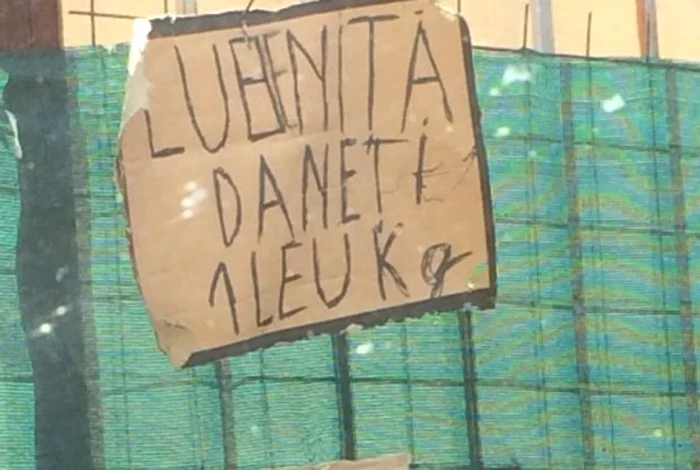 LUBENITĂ
DANETI
1 LEU Kg